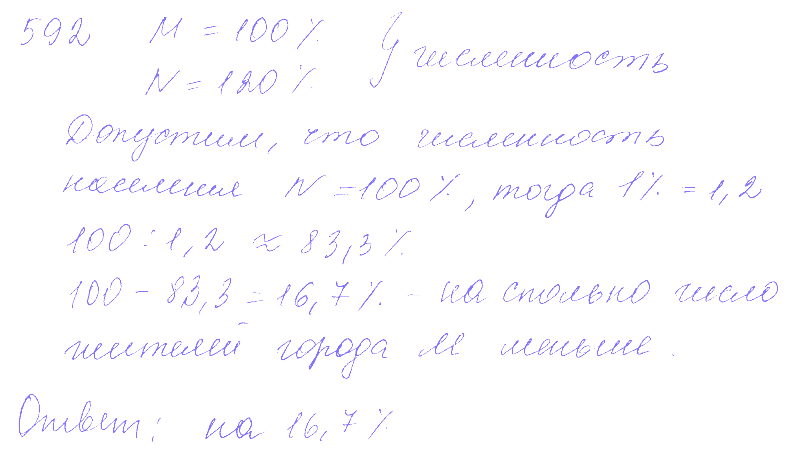 592 М = 100 % } численность
N = 120 %
Допустим, что численность
населения N = 100 %, тогда 1% = 1,2
100 : 1,2 ≈ 83,3 %
100 - 83,3 = 16,7 % - на сколько число
жителей города М меньше.
Ответ: на 16,7 %